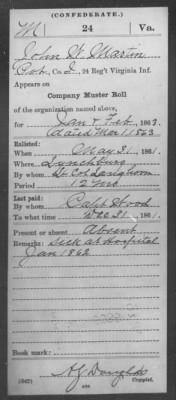 (CONFEDERATE.)
M | 24 | Va.
John W. Martin
Pvt, Co. I, 24 Reg't Virginia Inf.
Appears on
Company Muster Roll
of the organization named above,
for Jan & Feb, 1863.
dated Mar 1, 1863
Enlisted:
When May 31, 1861.
Where Lynchburg
By whom Lt Col Langhorn
Period 12 Mo
Last paid:
By whom Capt Hood
To what time Dec 31, 1861.
Present or absent Absent
Remarks: sick at Hospital
Jan 1862
Book mark:
(642)
Copyist.